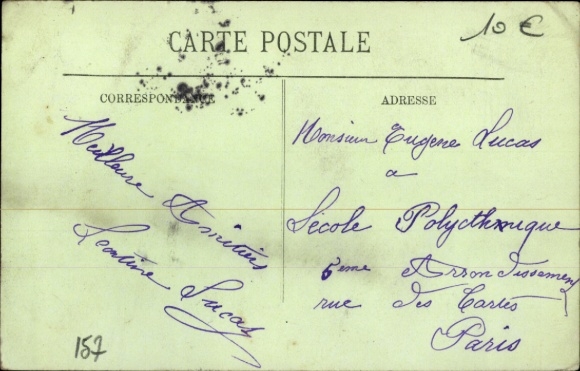 10 €
CARTE POSTALE
CORRESPONDANCE
ADRESSE
Meilleure Amitiers
Leontine Lucas
Monsieur Eugene Lucas
a
Lécole Polycthnique
5eme Arron dissement
rue des Cartes
Paris
157